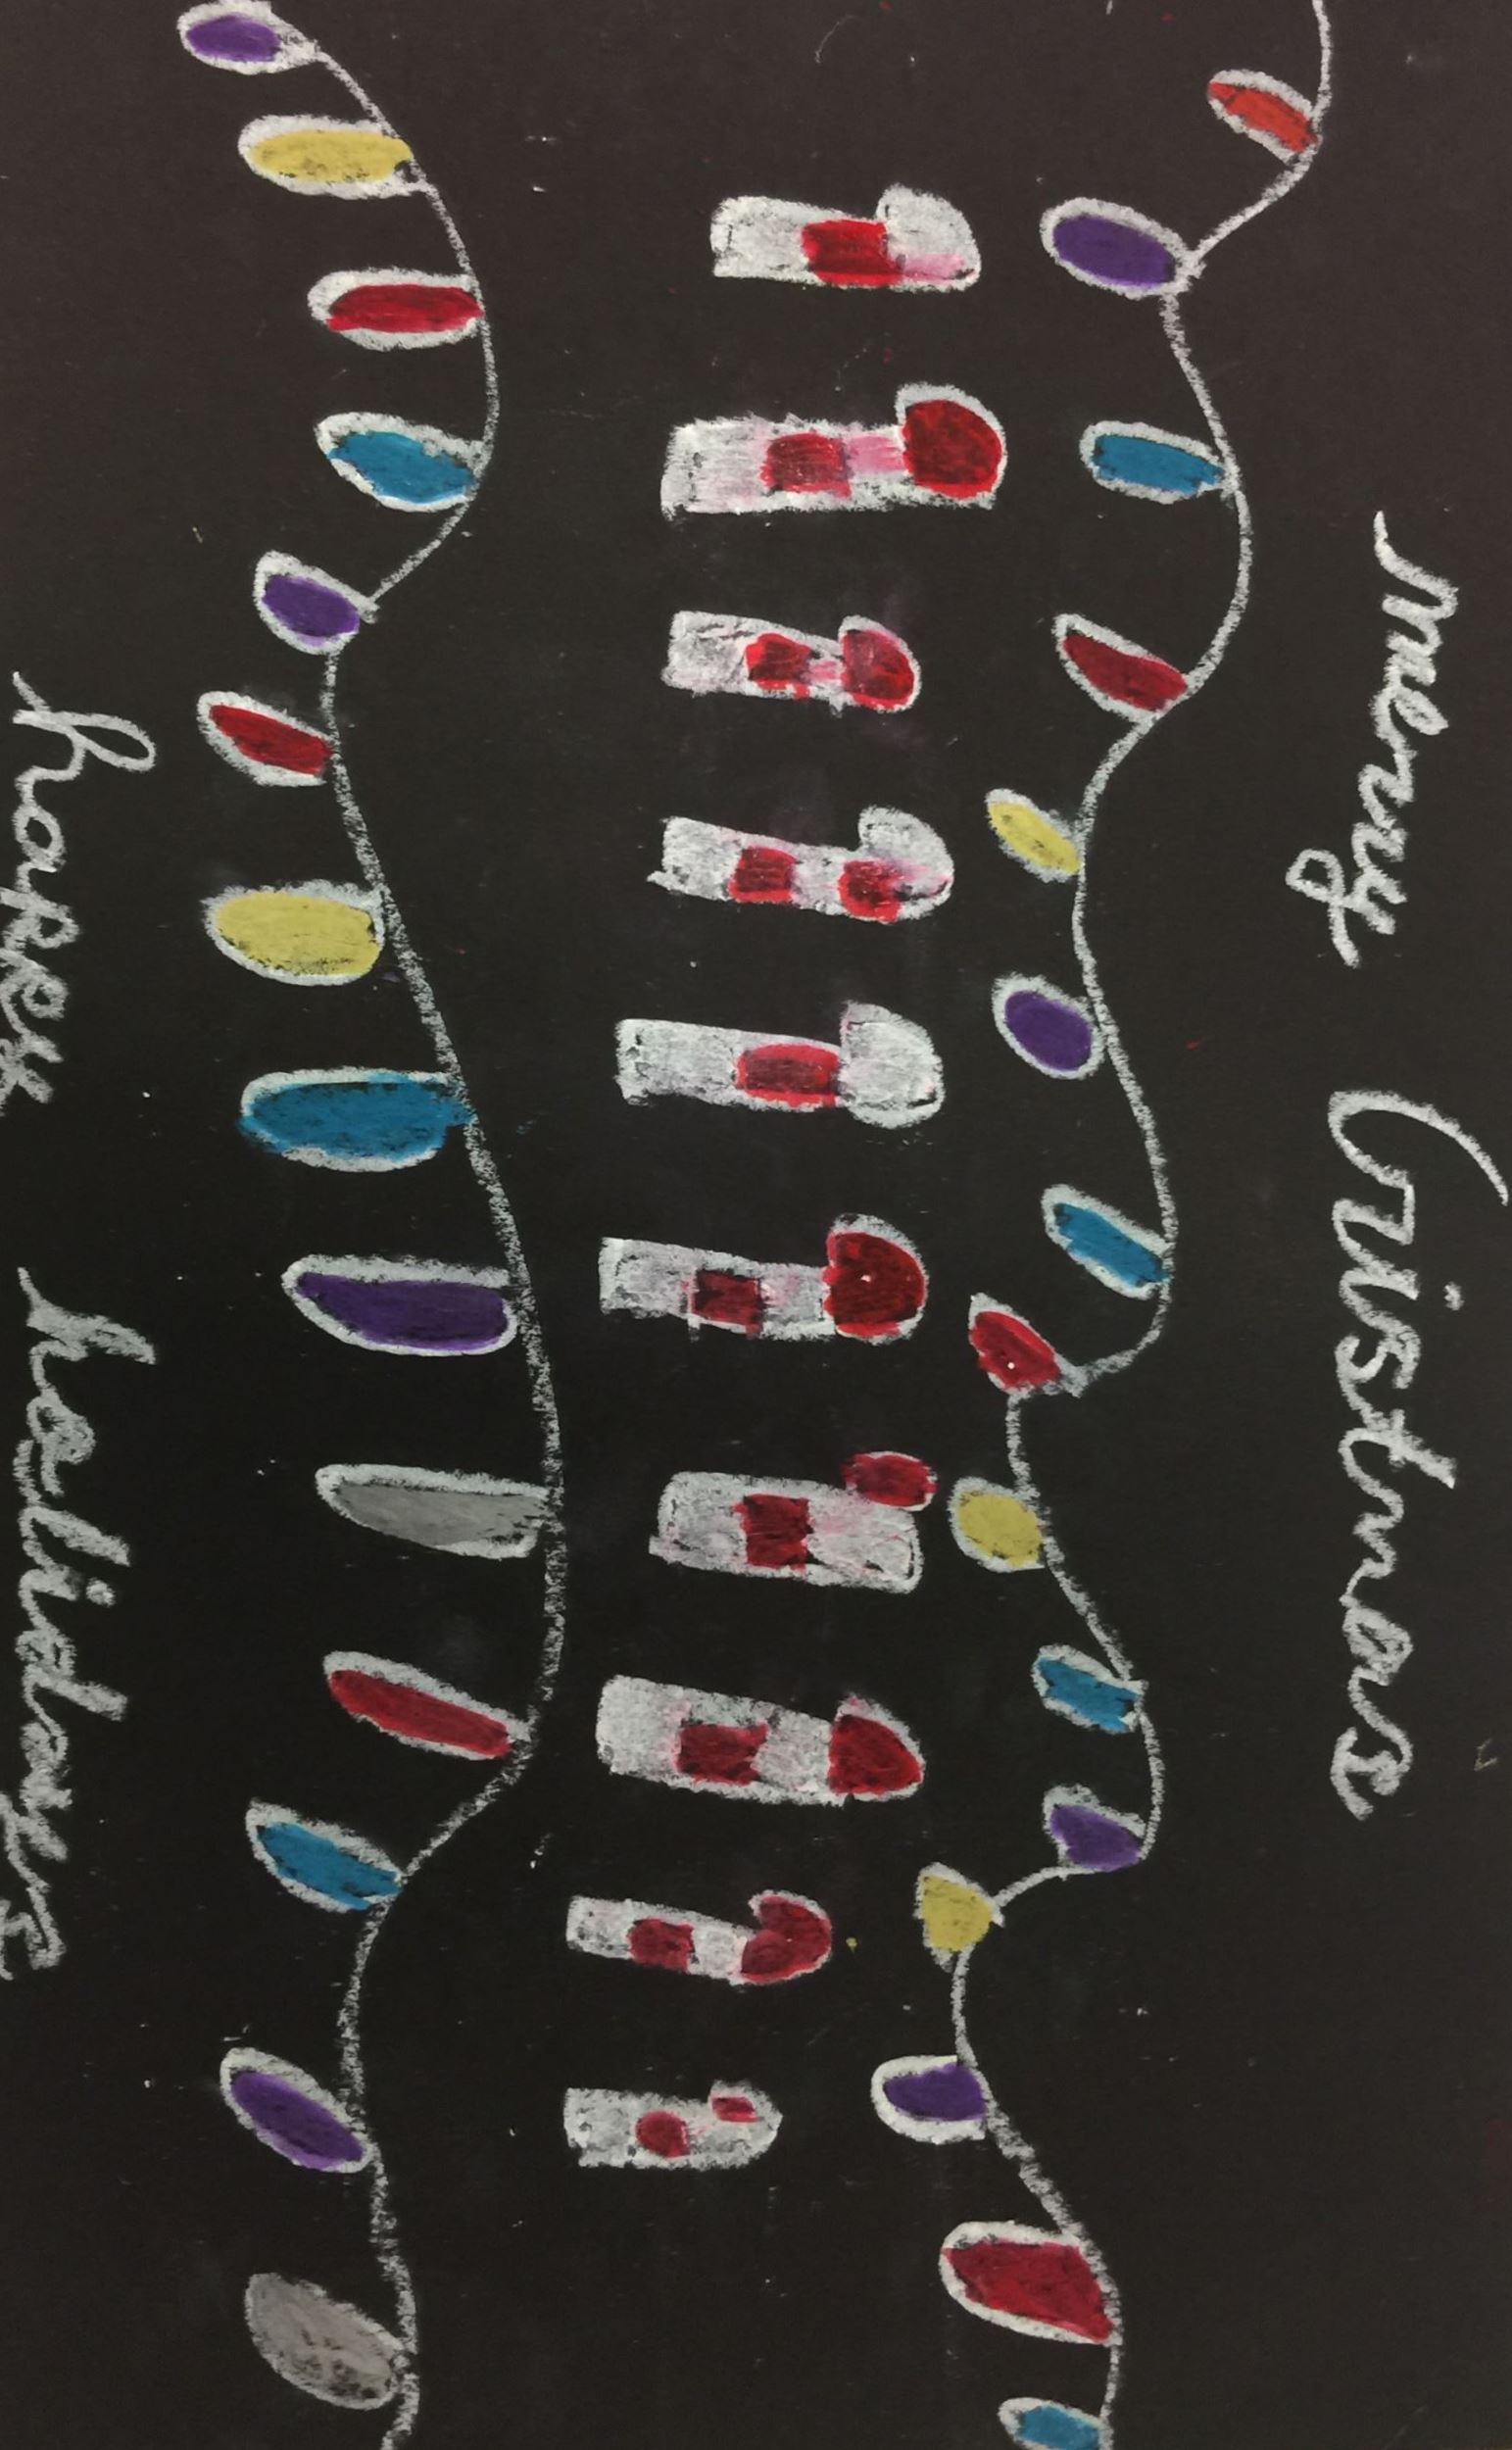 merry Cristmas
happy holidays